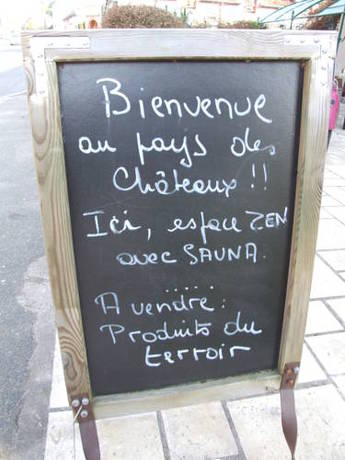 Bienvenue
au pays des
Châteaux !!
Ici, espace ZEN
avec SAUNA.
.....
A vendre :
Produits du
terroir